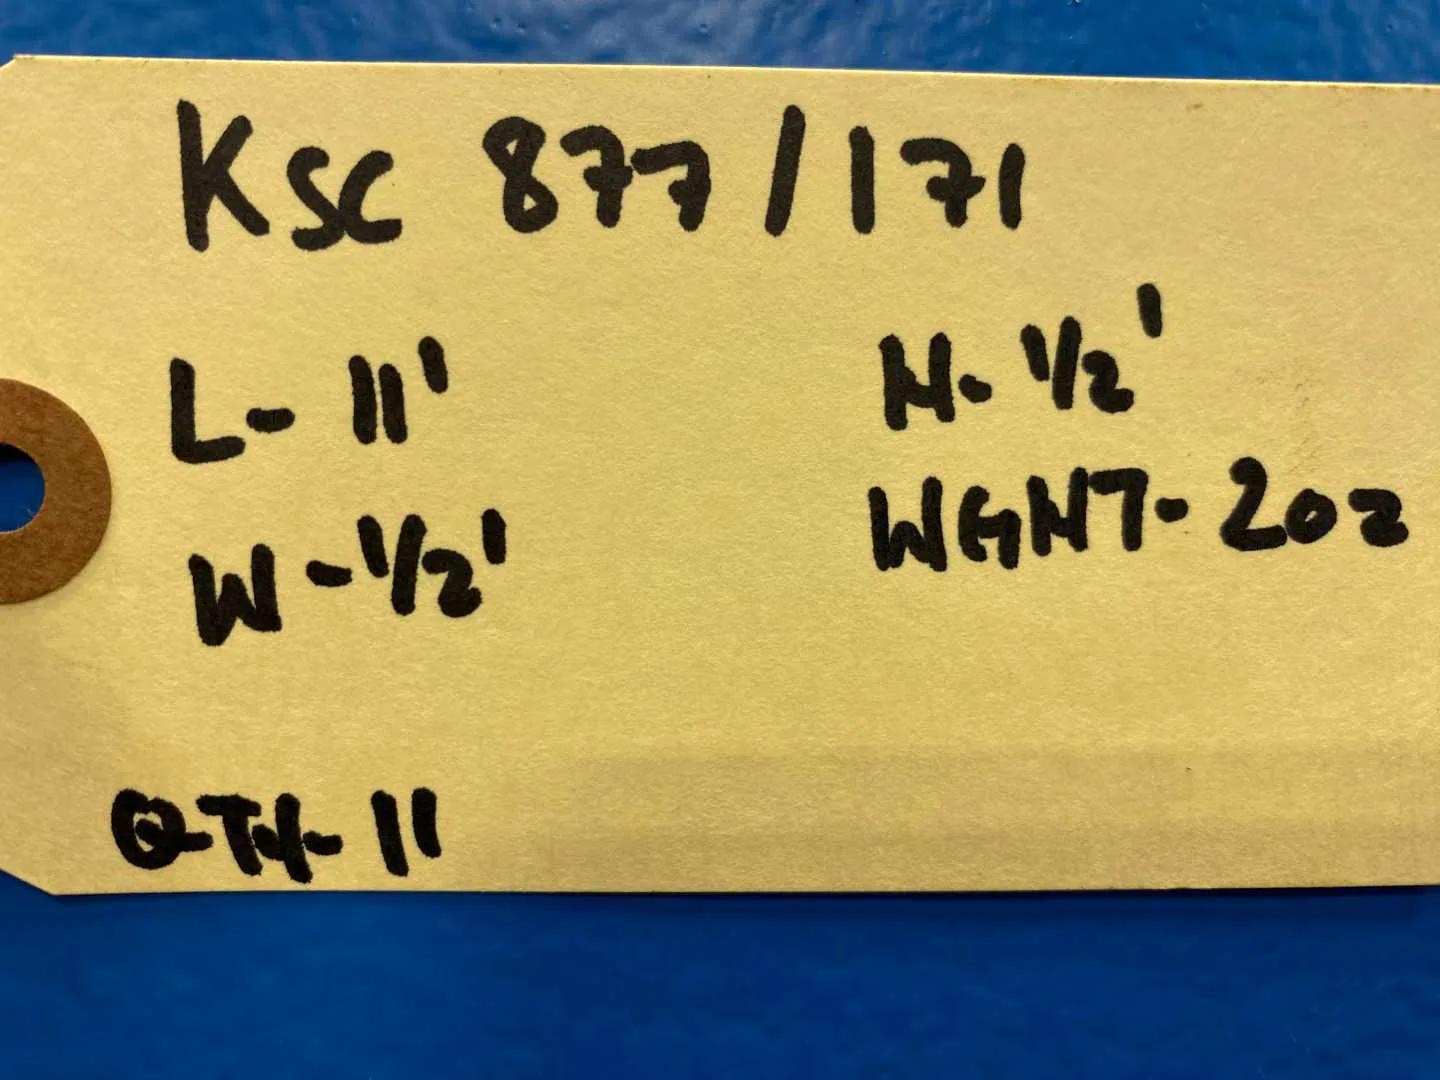 KSC 877/171
L- 11'
H- 1/2'
W-1/2'
WGHT- 2oz
QTY- 11